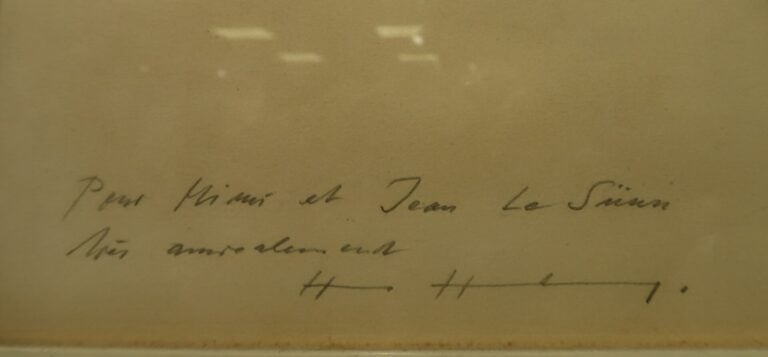 Pour Mimi et Jean Le
très amicalement